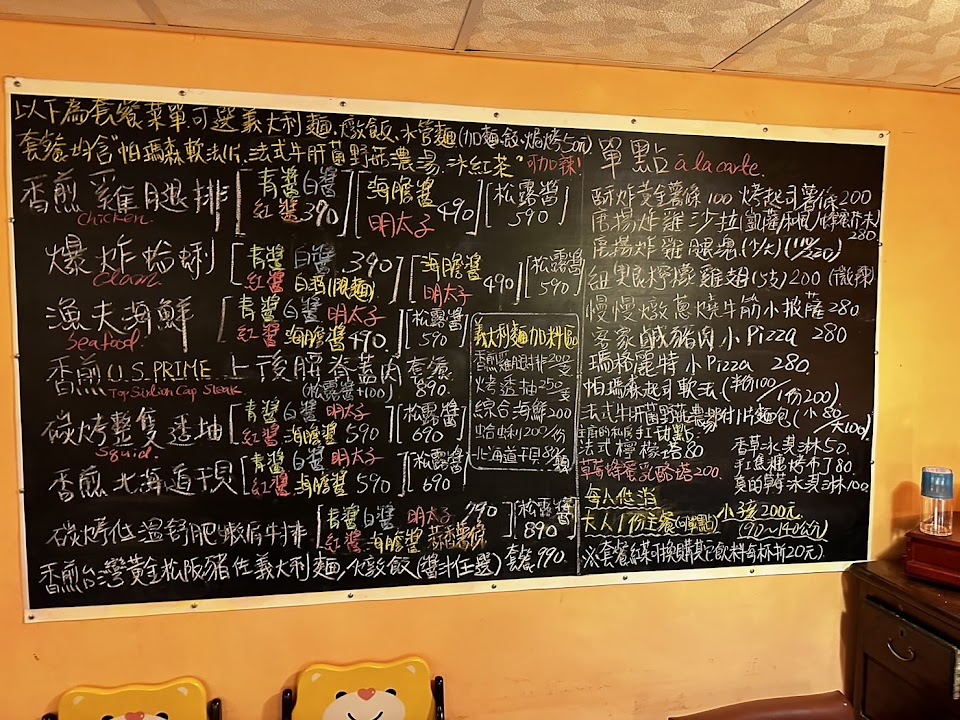 以下為套餐菜單.可選義大利麵.燉飯.水管麵(加麵.飯.焗烤50元)
套餐均含"帕瑪森軟法1片.法式牛肝菌野菇濃湯.冰紅茶" 可加辣!
香煎雞腿排 [青醬 白醬 紅醬 390] [海膽醬 明太子 490] [松露醬 590]
Chicken.
爆炸蛤蜊 [青醬 白醬 紅醬 白酒(限麵) 390] [海膽醬 明太子 490] [松露醬 590]
Clam.
漁夫海鮮 [青醬 白醬 明太子 紅醬 海膽醬 490] [松露醬 590]
Seafood.
香煎 U.S. PRIME 上後腰脊蓋肉 套餐 890.
Top Sirlion Cap Steak (松露醬+100)
碳烤整隻透抽 [青醬 白醬 明太子 紅醬 海膽醬 590] [松露醬 690]
Squid.
香煎北海道干貝 [青醬 白醬 明太子 紅醬 海膽醬 590] [松露醬 690]
碳烤低溫舒肥嫩肩牛排 [青醬 白醬 明太子 790 紅醬 海膽醬] [松露醬 890]
香煎台灣黃金松阪豬佐義大利麵/燉飯(醬汁任選) 套餐 990.
義大利麵加料區
香煎雞腿排200/支
烤透抽250/支
綜合海鮮200
蛤蜊120/份
北海道干貝80/顆
單點 à la carte.
酥炸黃金薯條100 烤起司薯條200
市場炸雞沙拉(凱薩/和風/) 280
市場炸雞腿塊(小/大)(110/220)
紐奧良檸檬雞翅(5支)200 (微辣)
慢慢燉蔥燒牛筋小披薩280
客家鹹豬肉小Pizza 280
瑪格麗特小Pizza 280.
帕瑪森起司軟法(半份100/1份200)
法式牛肝菌野菇濃湯附1片麵包(小80/大100)
主廚的私房手工甜點:
法式檸檬塔80
草莓蜂蜜乳酪塔200.
香草冰淇淋50.
手工焦糖烤布丁80.
真的草莓冰淇淋100.
每人低消
大人1份主餐(可單點) 小孩200元.
(90~140公分)
※套餐紅茶可換購其它飲料每杯折20元)